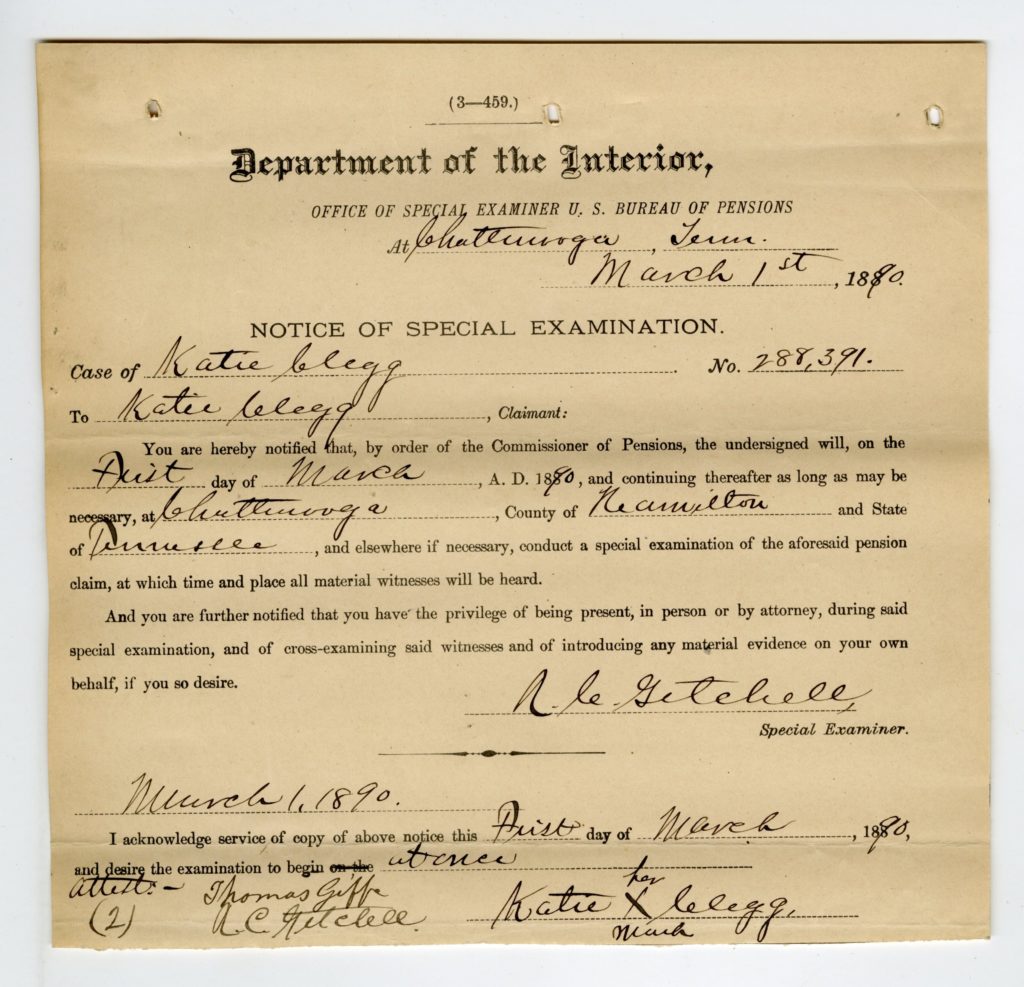 (3—459.)
Department of the Interior,
OFFICE OF SPECIAL EXAMINER U. S. BUREAU OF PENSIONS
At Chattanooga, Tenn.
March 1st, 1890.
NOTICE OF SPECIAL EXAMINATION.
Case of Katie Clegg. No. 288,391.
To Katie Clegg, Claimant:
You are hereby notified that, by order of the Commissioner of Pensions, the undersigned will, on the
First day of March, A. D. 1890, and continuing thereafter as long as may be
necessary, at Chattanooga, County of Hamilton and State
of Tennessee, and elsewhere if necessary, conduct a special examination of the aforesaid pension
claim, at which time and place all material witnesses will be heard.
And you are further notified that you have the privilege of being present, in person or by attorney, during said
special examination, and of cross-examining said witnesses and of introducing any material evidence on your own
behalf, if you so desire.
Special Examiner.
March 1, 1890.
I acknowledge service of copy of above notice this First day of March, 1890,
and desire the examination to begin on the at once
Attest:-
Thomas
(2)
Katie her X mark Clegg.